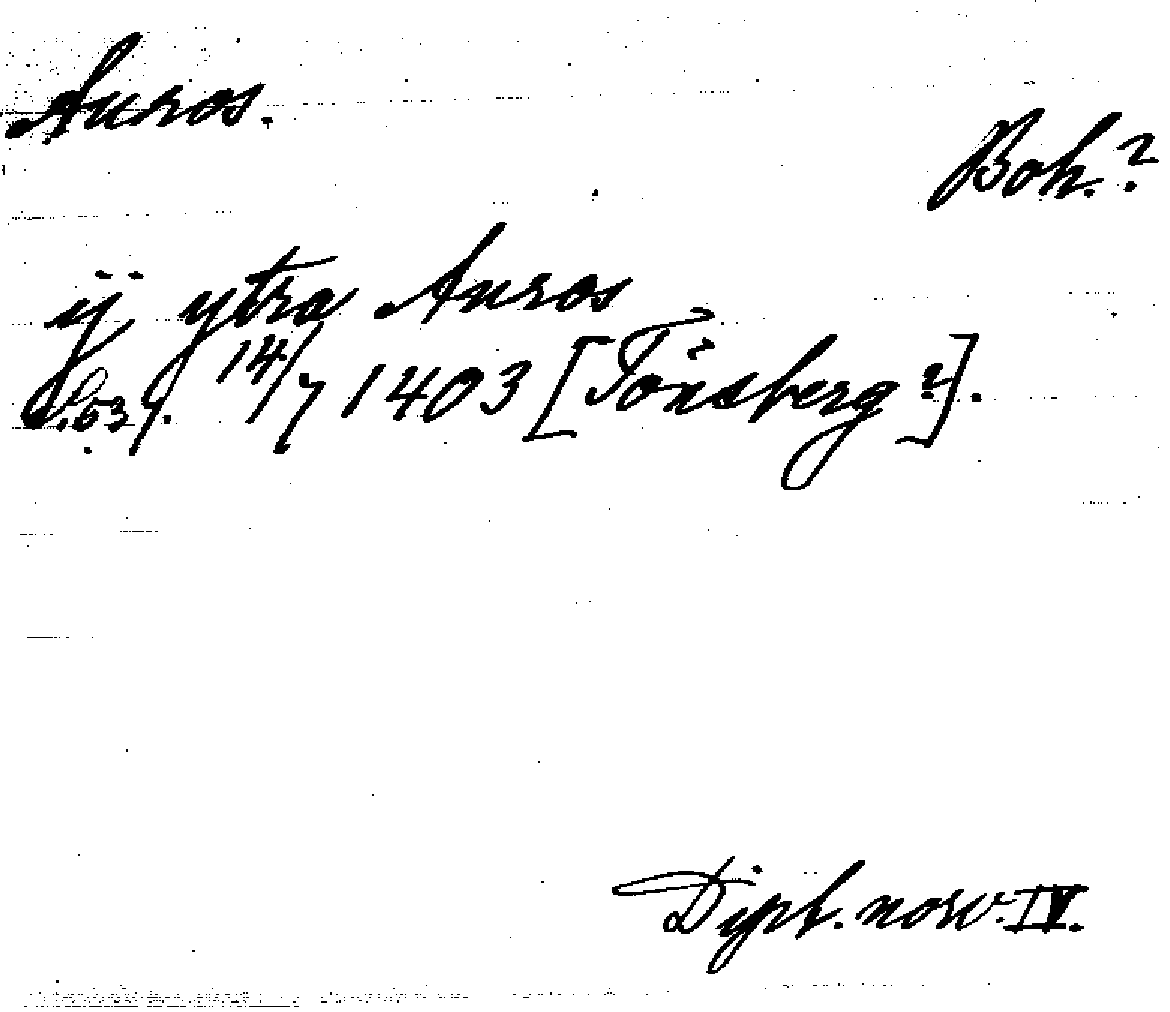 Auros.
Boh.?
ij ytra Auros
S. 537. 14/7 1403 [Tönsberg?].
Dipl. norv. IV.